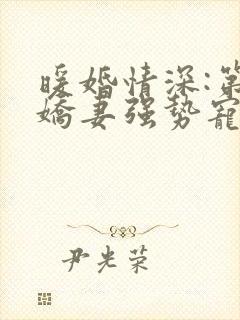 暖婚情深:第
嬌妻强势寵
尹光荣